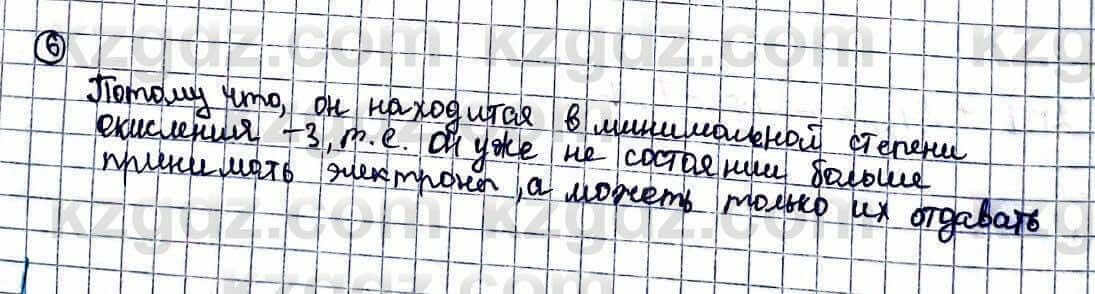 kzgdz.com kzgdz.com kzg
6
Потому что, он находится в минимальной степени
окисления -3, т.е. он уже не состоянии больше
принимать электроны, а может только их отдавать
kzgdz.com kzgdz.com kzg